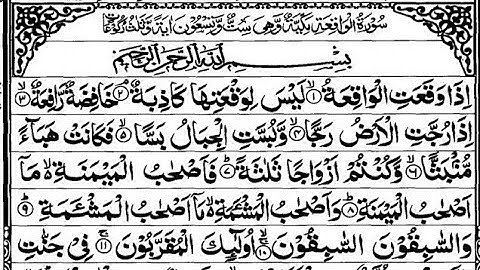 سُوْرَةُ الْوَاقِعَةِ مَكِّيَّةٌ وَّهِيَ سِتٌّ وَّتِسْعُوْنَ اٰيَةً وَّثَلٰثُ رُكُوْعَاتٍ
بِسْمِ اللّٰهِ الرَّحْمٰنِ الرَّحِيْمِ
اِذَا وَقَعَتِ الْوَاقِعَةُ ۙ﴿۱﴾ لَيْسَ لِوَقْعَتِهَا كَاذِبَةٌ ۘ﴿۲﴾ خَافِضَةٌ رَّافِعَةٌ ۙ﴿۳﴾
اِذَا رُجَّتِ الْاَرْضُ رَجًّا ۙ﴿۴﴾ وَّبُسَّتِ الْجِبَالُ بَسًّا ۙ﴿۵﴾ فَكَانَتْ هَبَآءً
مُّنْۢبَثًّا ۙ﴿۶﴾ وَّكُنْتُمْ اَزْوَاجًا ثَلٰثَةً ؕ﴿۷﴾ فَاَصْحٰبُ الْمَيْمَنَةِ ۙ۬ مَاۤ
اَصْحٰبُ الْمَيْمَنَةِ ؕ﴿۸﴾ وَاَصْحٰبُ الْمَشْـَٔمَةِ ۙ۬ مَاۤ اَصْحٰبُ الْمَشْـَٔمَةِ ؕ﴿۹﴾
وَالسّٰبِقُوْنَ السّٰبِقُوْنَ ۚۙ﴿۱۰﴾ اُولٰٓئِكَ الْمُقَرَّبُوْنَ ۚ﴿۱۱﴾ فِيْ جَنّٰتِ